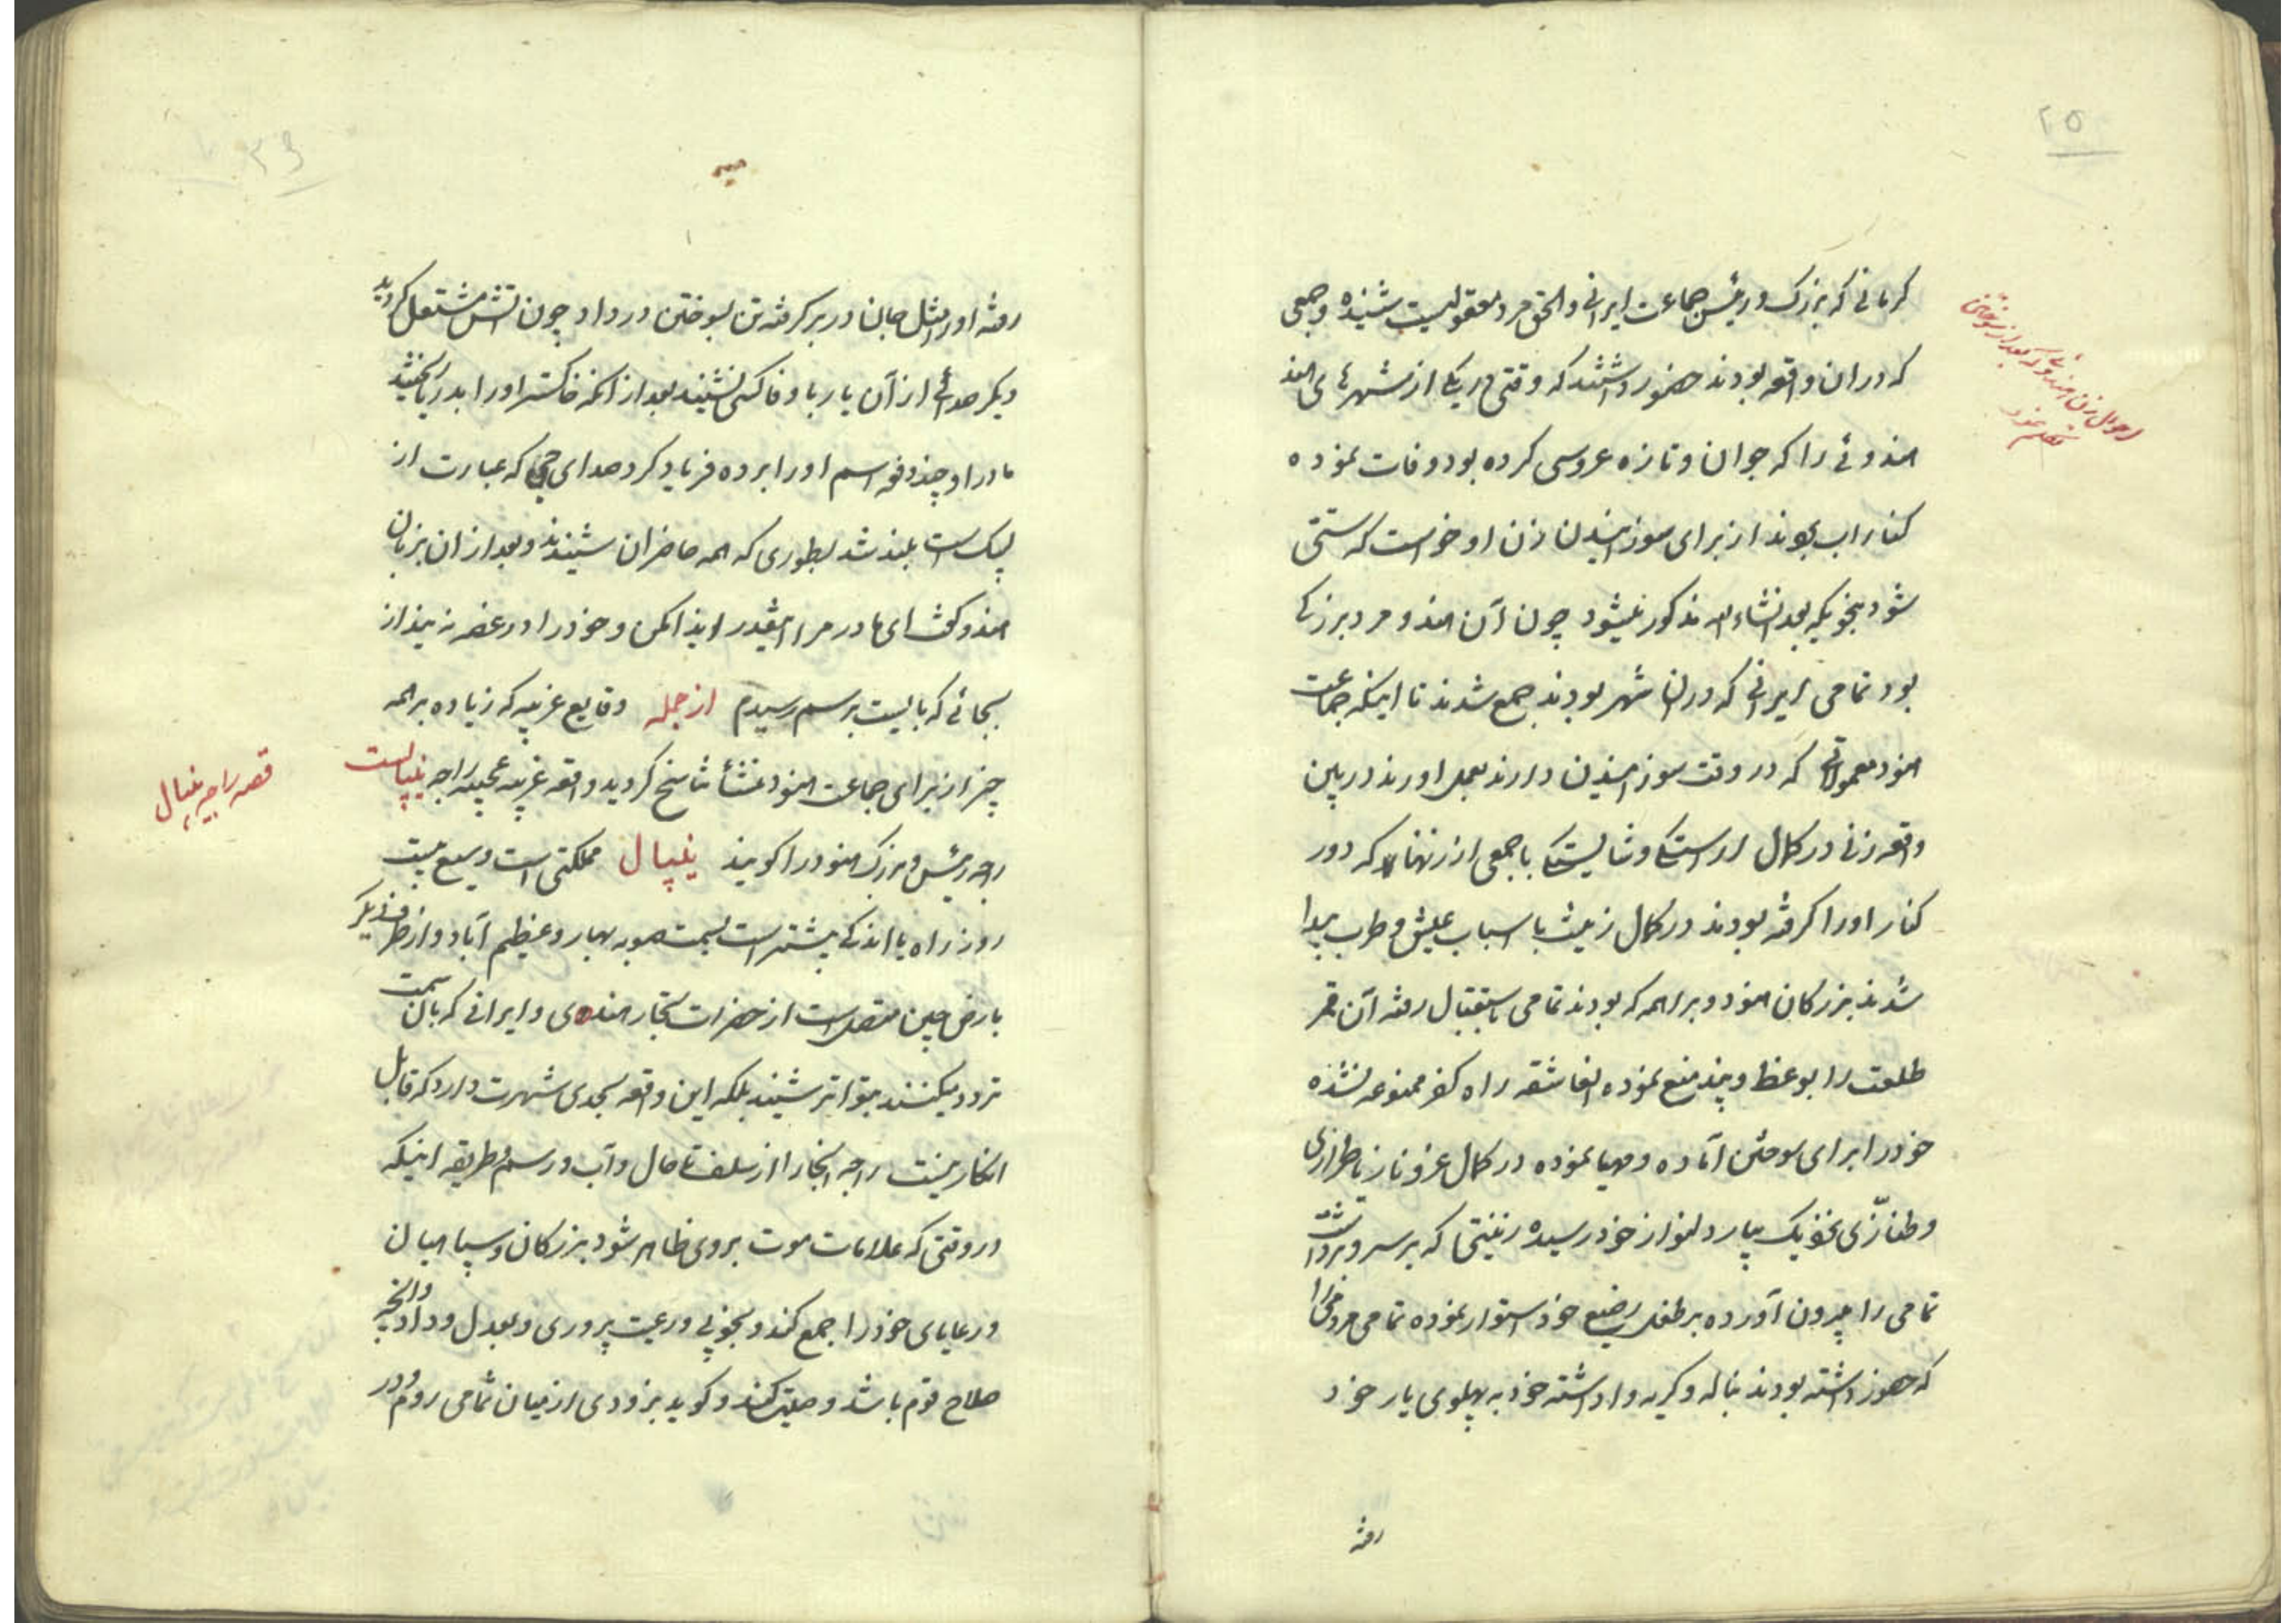 ۲۵
کرمانی که بزرک و رئیس جماعت ایرانی والحق مرد معقولیست شنیده و جمعی
که دران واقعه بودند حضور داشتند که وقتی در یکی از شهرهای هند
هندوئی را که جوان و تازه عروسی کرده بود وفات نموده
کنار اب بودند از برای سوزانیدن زن او خواست که ستی
شود بنحویکه بعد انشاء الله مذکور میشود چون آن هندو مرد بزرکی
بود تمامی ایرانی که دران شهر بودند جمع شدند تا اینکه جماعت
هنود معمولاتی که در وقت سوزانیدن دارند بعمل اورند درین
واقعه زنی در کمال اراستکی و شایستکی با جمعی از زنها که دور
کنار اورا کرفته بودند در کمال زینت با اسباب عیش و طرب پیدا
شدند بزرکان هنود و براهمه که بودند تمامی باستقبال رفته آن قمر
طلعت را بوعظ و پند منع نموده العاشقه راه کفر ممنوعه نشده
خود را برای سوختن آماده و مهیا نموده در کمال عز و ناز با طراری
و طنازی بنزدیک یار دلنواز خود رسیده زینتی که بر سر و بر داشت
تمامی را بیرون آورده بر طفل رضیع خود استوار نموده تمامی مردمی را
که حضور داشته بودند بناله و کریه وا داشته خود به پهلوی یار خود
رفته
احوال زن هندوئی که بعد از سوختن
تکلم نمود
۲۶
رفته اورا مثل جان در بر کرفته تن بسوختن در داد چون اتش مشتعل کردید
دیکر صدائی از آن یار با وفا کسی نشنید بعد از انکه خاکستر اورا بدریا ریختند
مادر او چند دفعه اسم اورا برده فریاد کرد صدای جی که عبارت از
لبیک است بلند شد بطوری که همه حاضران شنیدند و بعد از ان بزبان
هندو کفت ای مادر مرا اینقدر ایذا مکن و خود را در غصه نینداز
بجائی که بایست برسم رسیدم از جمله وقایع غریبه که زیاده بر همه
چیز از برای جماعت هنود منشأ تناسخ کردید واقعه غریبه عجیبه راجه نیپالست
راجه رئیس و بزرک هنود را کویند نیپال مملکتی است وسیع بیست
روز راه یا اندکی بیشتر است بسمت صوبه بهار و عظیم آباد و از طرف دیکر
بارض چین متصل است از حضرات تجار هندی و ایرانی که بان سمت
تردد میکنند بتواتر شنیده بلکه این واقعه بحدی شهرت دارد که قابل
انکار نیست راجه انجا را از سلف تا حال دآب و رسم و طریقه اینکه
در وقتی که علامات موت بر وی ظاهر شود بزرکان و سپاهیان
و رعایای خود را جمع کند و بخوبی و رعیت پروری و بعدل و داد و انچه
صلاح قوم باشد وصیت کند و کوید بزودی از میان شما می روم و در
قصه راجه نیپال